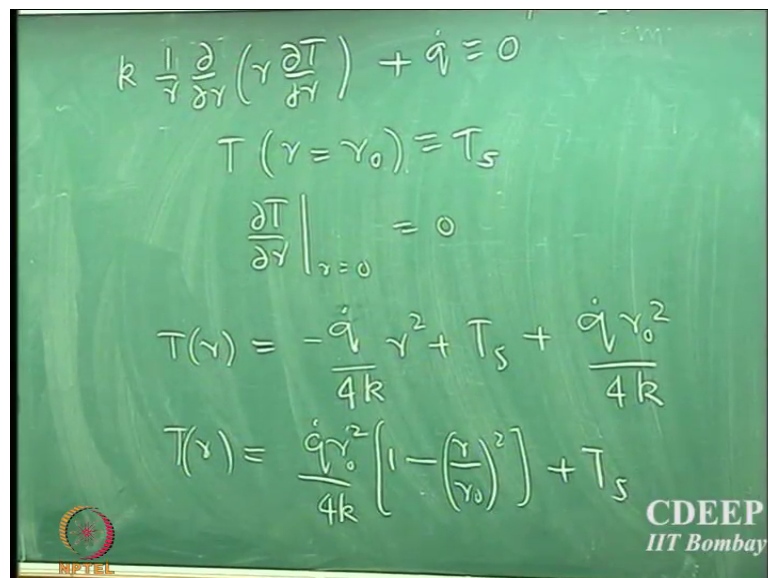 k 1/r ∂/∂r (r ∂T/∂r) + q̇ = 0
T (r = r₀) = Tₛ
∂T/∂r |ᵣ₌₀ = 0
T(r) = - q̇/4k r² + Tₛ + q̇ r₀²/4k
T(r) = q̇r₀²/4k [1 - (r/r₀)²] + Tₛ
CDEEP
IIT Bombay
NPTEL